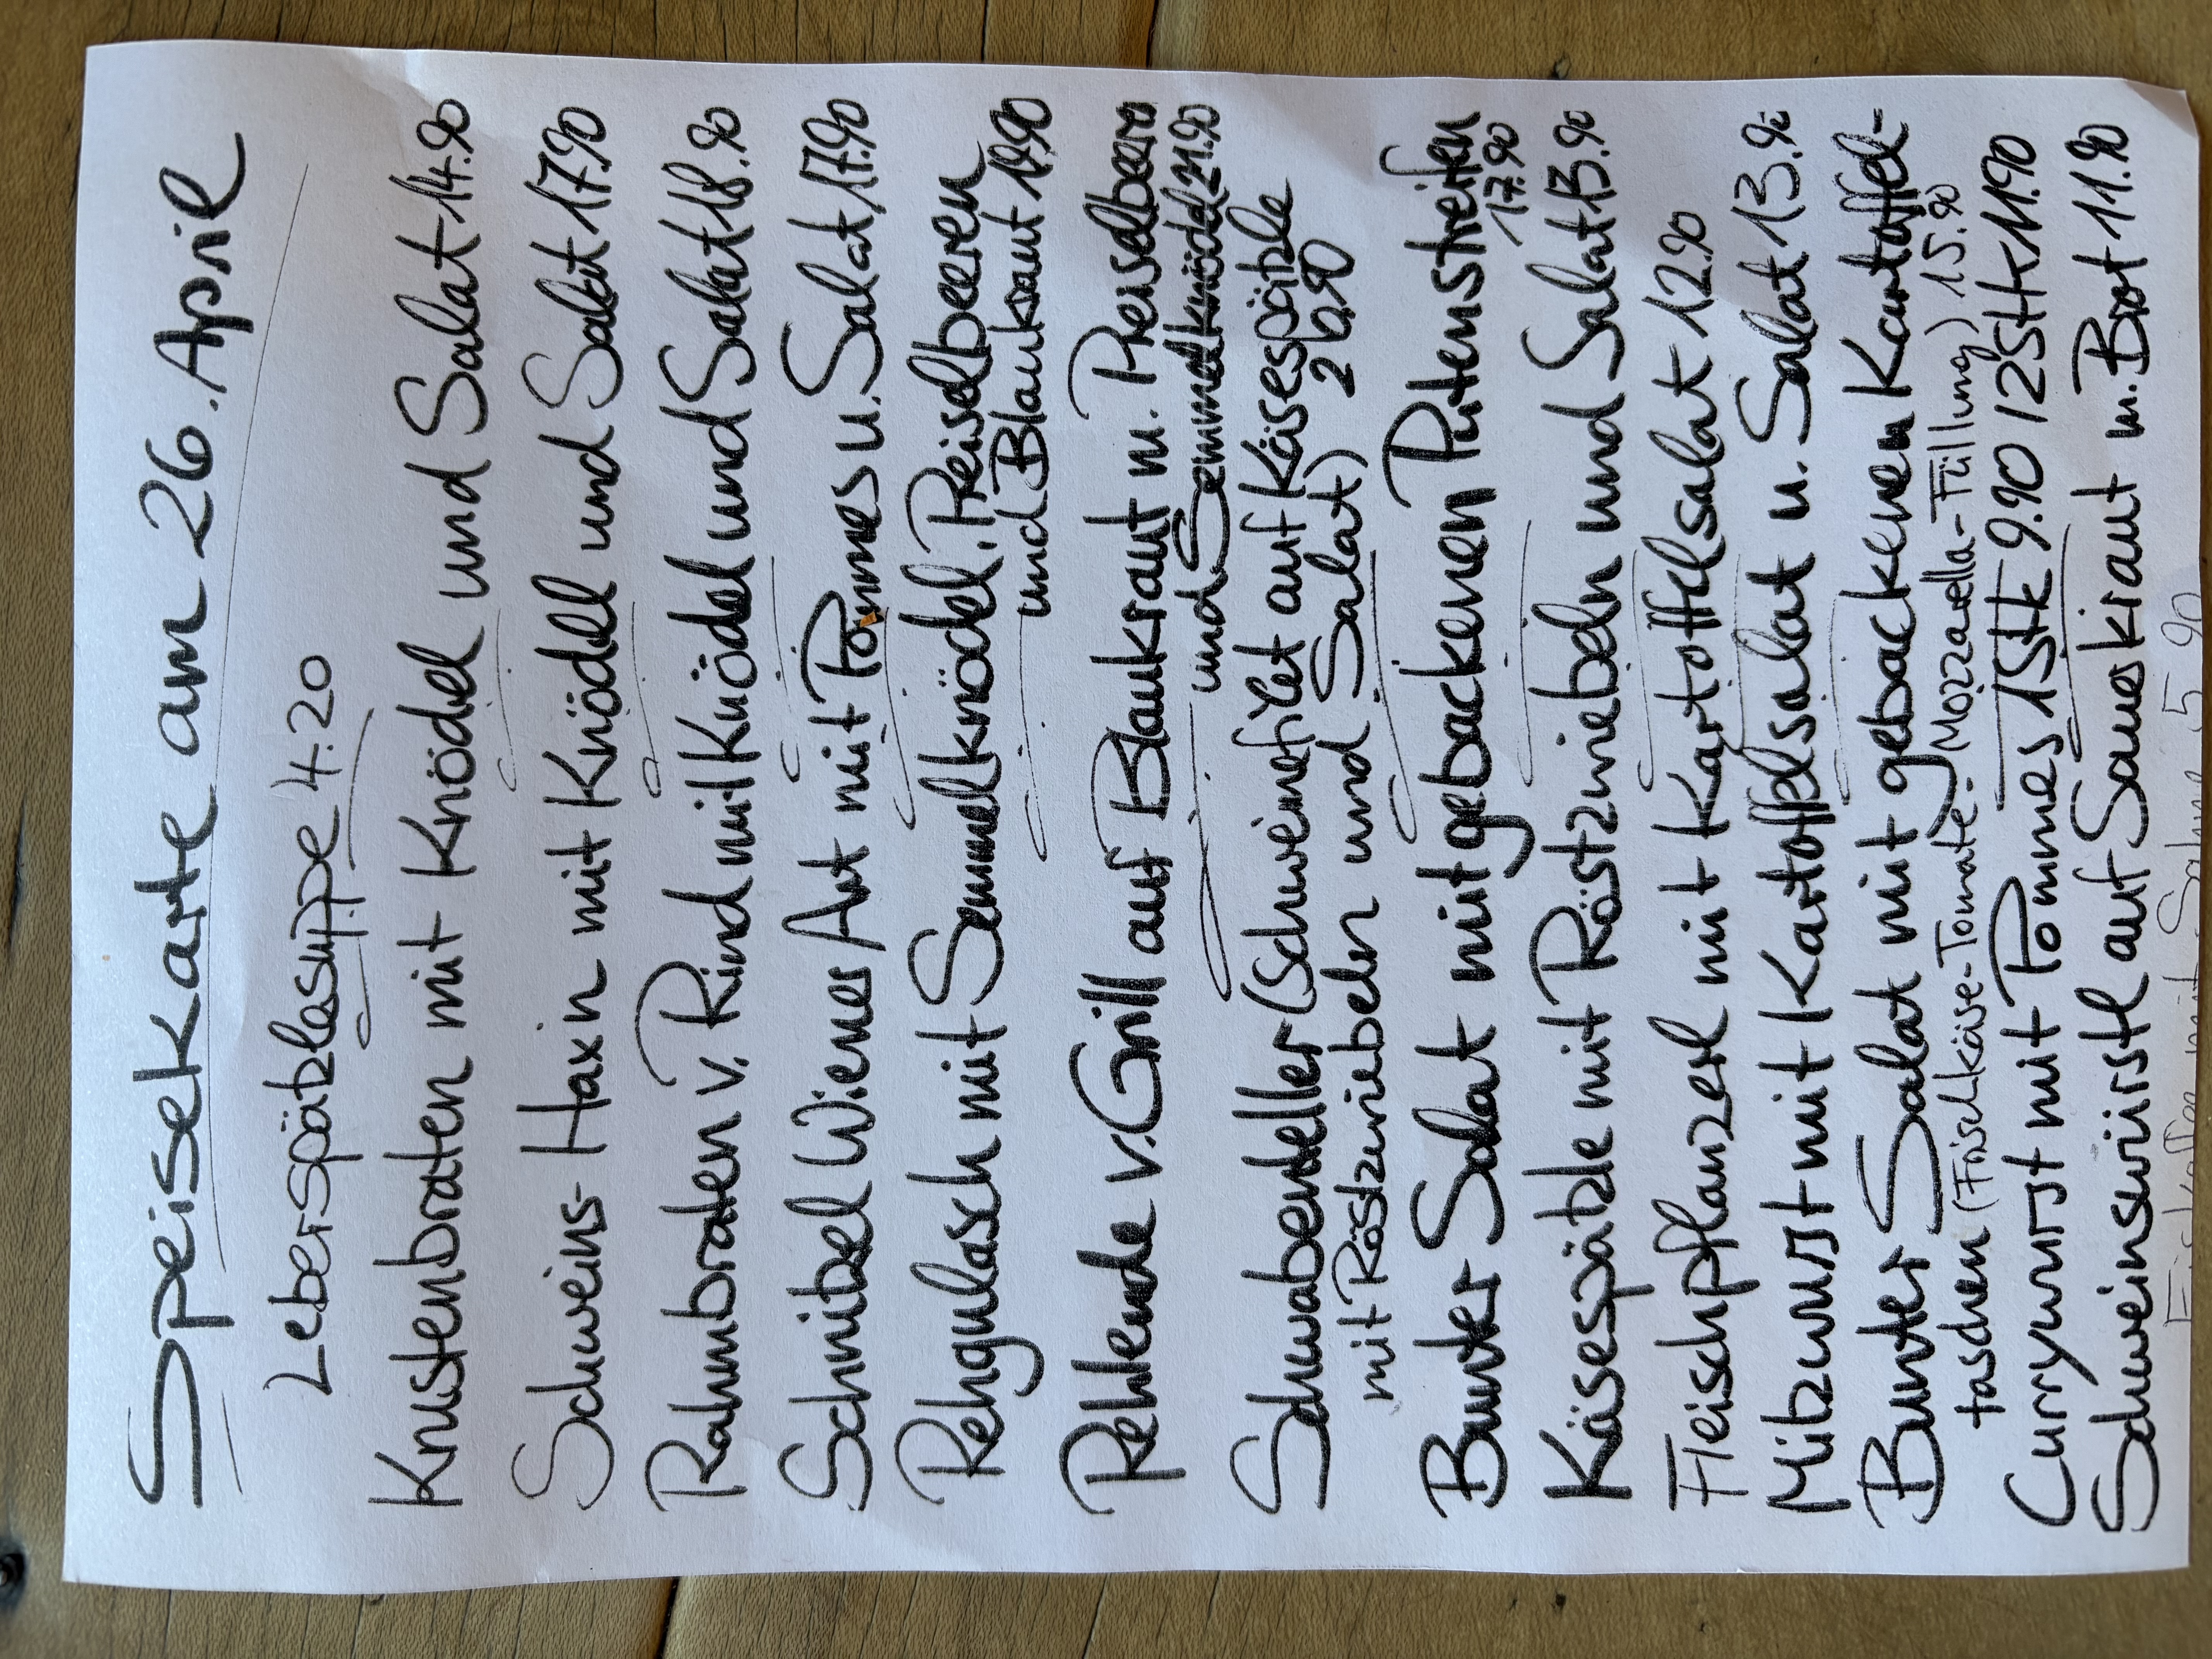 Speisekarte am 26. April
Leberspätzlesuppe 4.20
Krustenbraten mit Knödel und Salat 14.90
Schweins-Haxn mit Knödel und Salat 17.90
Rahmbraten v. Rind mit Knödel und Salat 18.90
Schnitzel Wiener Art mit Pommes u. Salat 17.90
Rehgulasch mit Semmelknödel, Preiselbeeren
und Blaukraut 19.90
Rehlende v. Grill auf Blaukraut m. Preiselbeere
und Semmelknödel 21.90
Schwabenteller (Schweinefilet auf Käsespätzle
mit Röstzwiebeln und Salat) 20.90
Bunter Salat mit gebackenen Putenstreifen
17.90
Käsespätzle mit Röstzwiebeln und Salat 13.90
Fleischpflanzerl mit Kartoffelsalat 12.90
Milzwurst mit Kartoffelsalat u. Salat 13.90
Bunter Salat mit gebackenen Kartoffel-
taschen (Frischkäse-Tomate-Mozzarella-Füllung) 15.90
Currywurst mit Pommes 1Stk 9.90 / 2Stk 11.90
Schweinswürstl auf Sauerkraut m. Brot 11.90
Eiskaffee mit Sahne 5.90